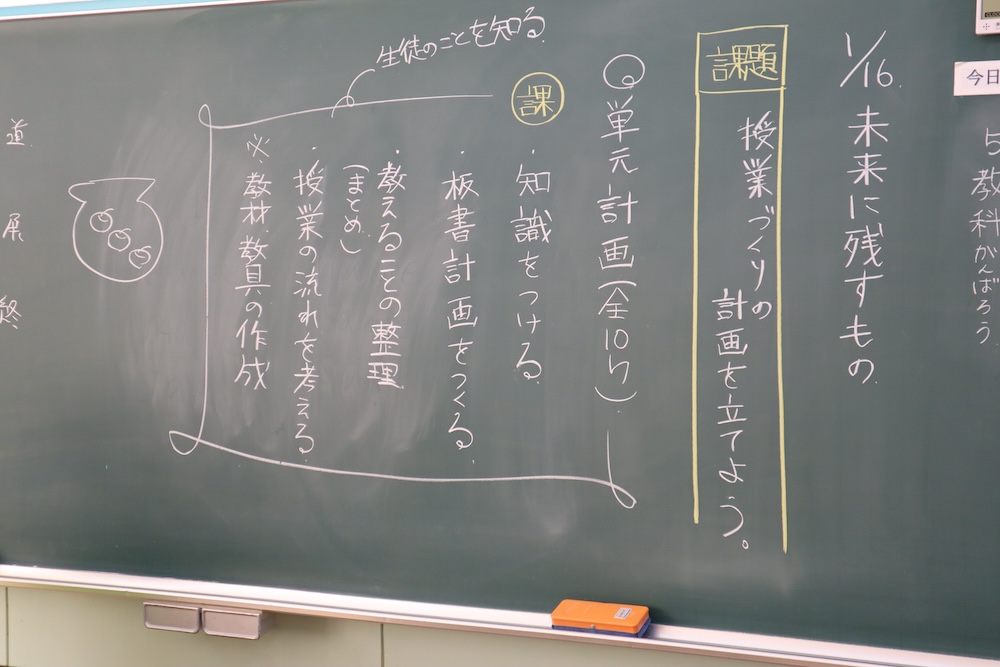 今日
5
教科がんばろう
1/16. 未来に残すもの
課題
授業づくりの
計画を立てよう。
単元計画(全10h)
課
・知識をつける
・板書計画をつくる
・教えることの整理
(まとめ)
・授業の流れを考える
※教材、教具の作成
生徒のことを知る
道
展
終